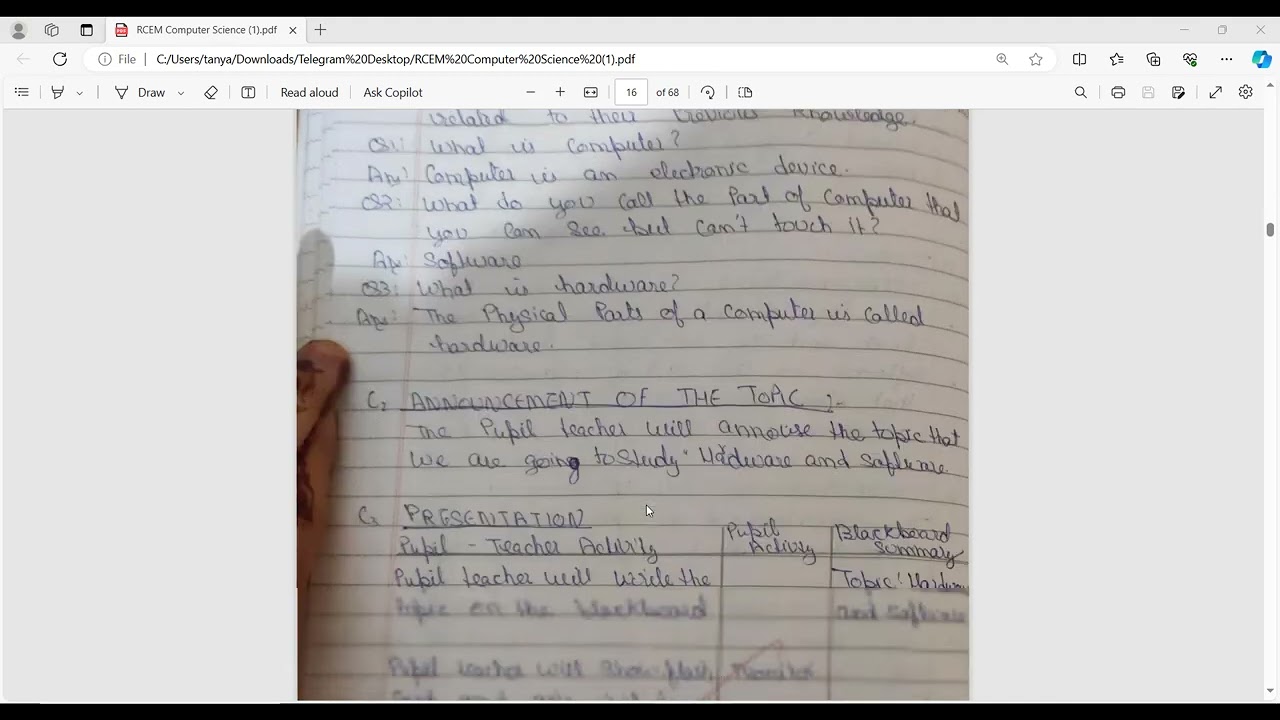 RCEM Computer Science (1).pdf
File C:/Users/tanya/Downloads/Telegram%20Desktop/RCEM%20Computer%20Science%20(1).pdf
Draw Read aloud Ask Copilot 16 of 68
related to their Previous Knowledge.
Q1: What is Computer?
Ans: Computer is an electronic device.
Q2: What do you call the Part of Computer that
you can see but can't touch it?
Ans: Software
Q3: What is hardware?
Ans: The Physical Parts of a computer is called
hardware.
C2 ANNOUNCEMENT OF THE TOPIC :-
The Pupil teacher will annouse the topic that
we are going to study "Hardware and Software
C3 PRESENTATION
Pupil - Teacher Activity Pupil Activity Blackboard Summary
Pupil teacher will write the Topic: Hardware
topic on the blackboard and Software
Pupil teacher will show flash Monitor